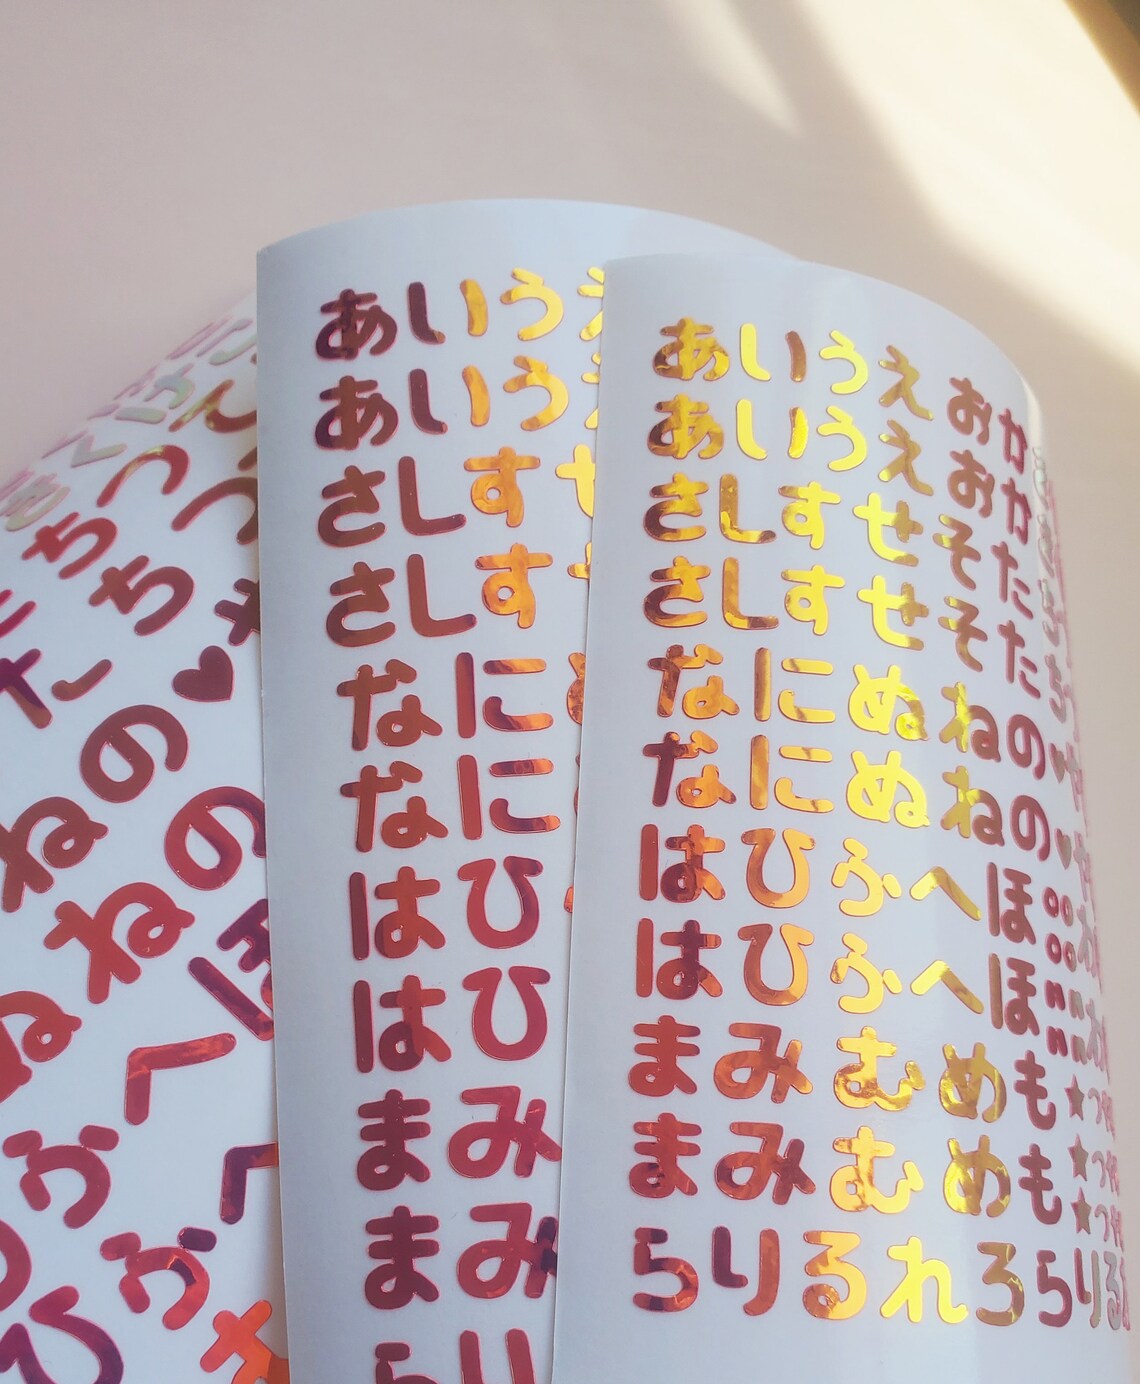 あいうえおか
あいうえおか
さしすせそた
さしすせそた
なにぬねの♥
なにぬねの♥
はひふへほ
はひふへほ
まみむめも★つ
まみむめも★つ
らりるれろらりる
あいう
あいう
さしすせ
さしすせ
なに
なに
はひ
はひ
まみ
まみ
らり
ちつ
ちつ
ねの♥
ねの
ぬ
ふへほ
ふへ
ひ